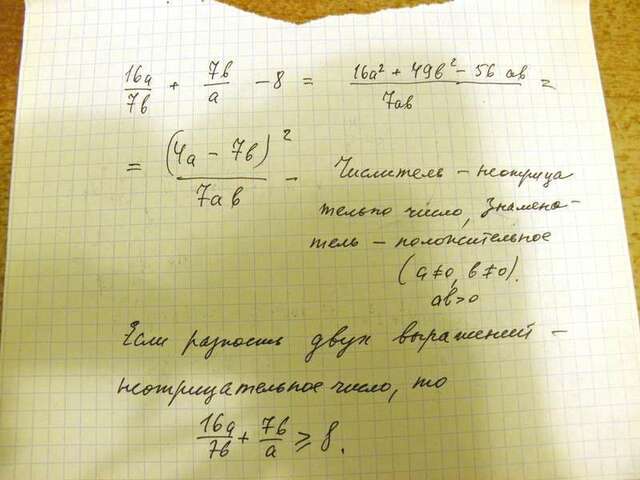 16a/7b + 7b/a - 8 = (16a² + 49b² - 56 ab)/7ab =
= (4a - 7b)²/7ab - Числитель - неотрица
тельно число, Знамена-
тель - положительное
(a≠0, b≠0).
ab>0
Если разность двух выражений -
неотрицательное число, то
16a/7b + 7b/a ⩾ 8.